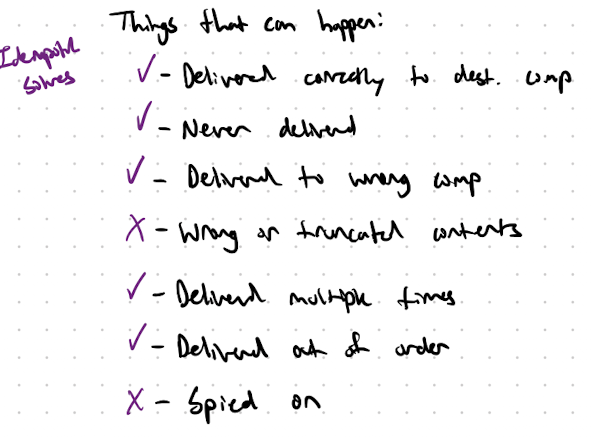 Things that can happen:
Idempotent
solves
✓ - Delivered correctly to dest. comp
✓ - Never delivered
✓ - Delivered to wrong comp
X - Wrong or truncated contents
✓ - Delivered multiple times
✓ - Delivered out of order
X - Spied on